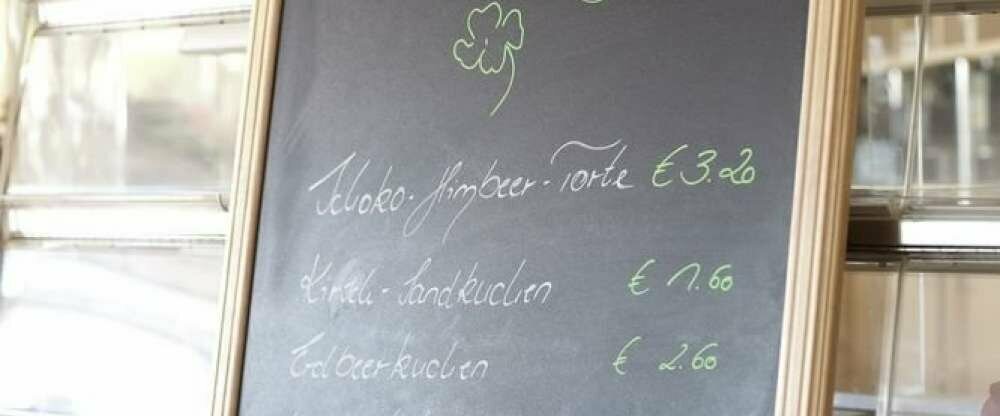 Schoko-Himbeer-Torte € 3.20
Kirsch-Sandkuchen € 1.60
Erdbeerkuchen € 2.60